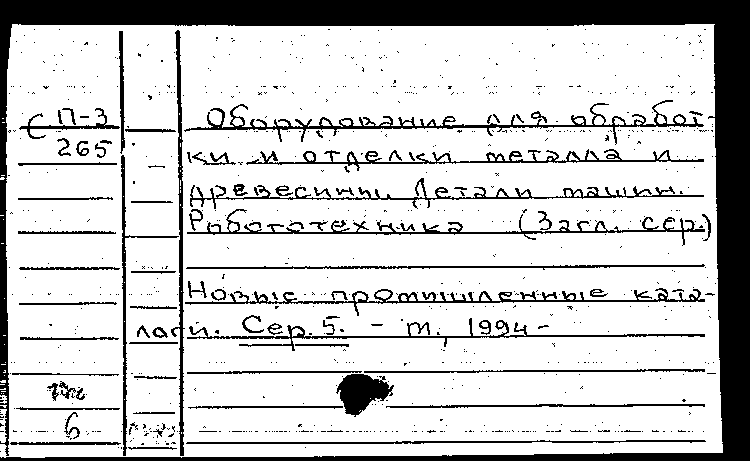 С П-3
265
Оборудование для обработ-
ки и отделки металла и
древесины. Детали машин.
Робототехника (Загл. сер.)
Новые промышленные ката-
логи. Сер. 5. - м., 1994 -
6